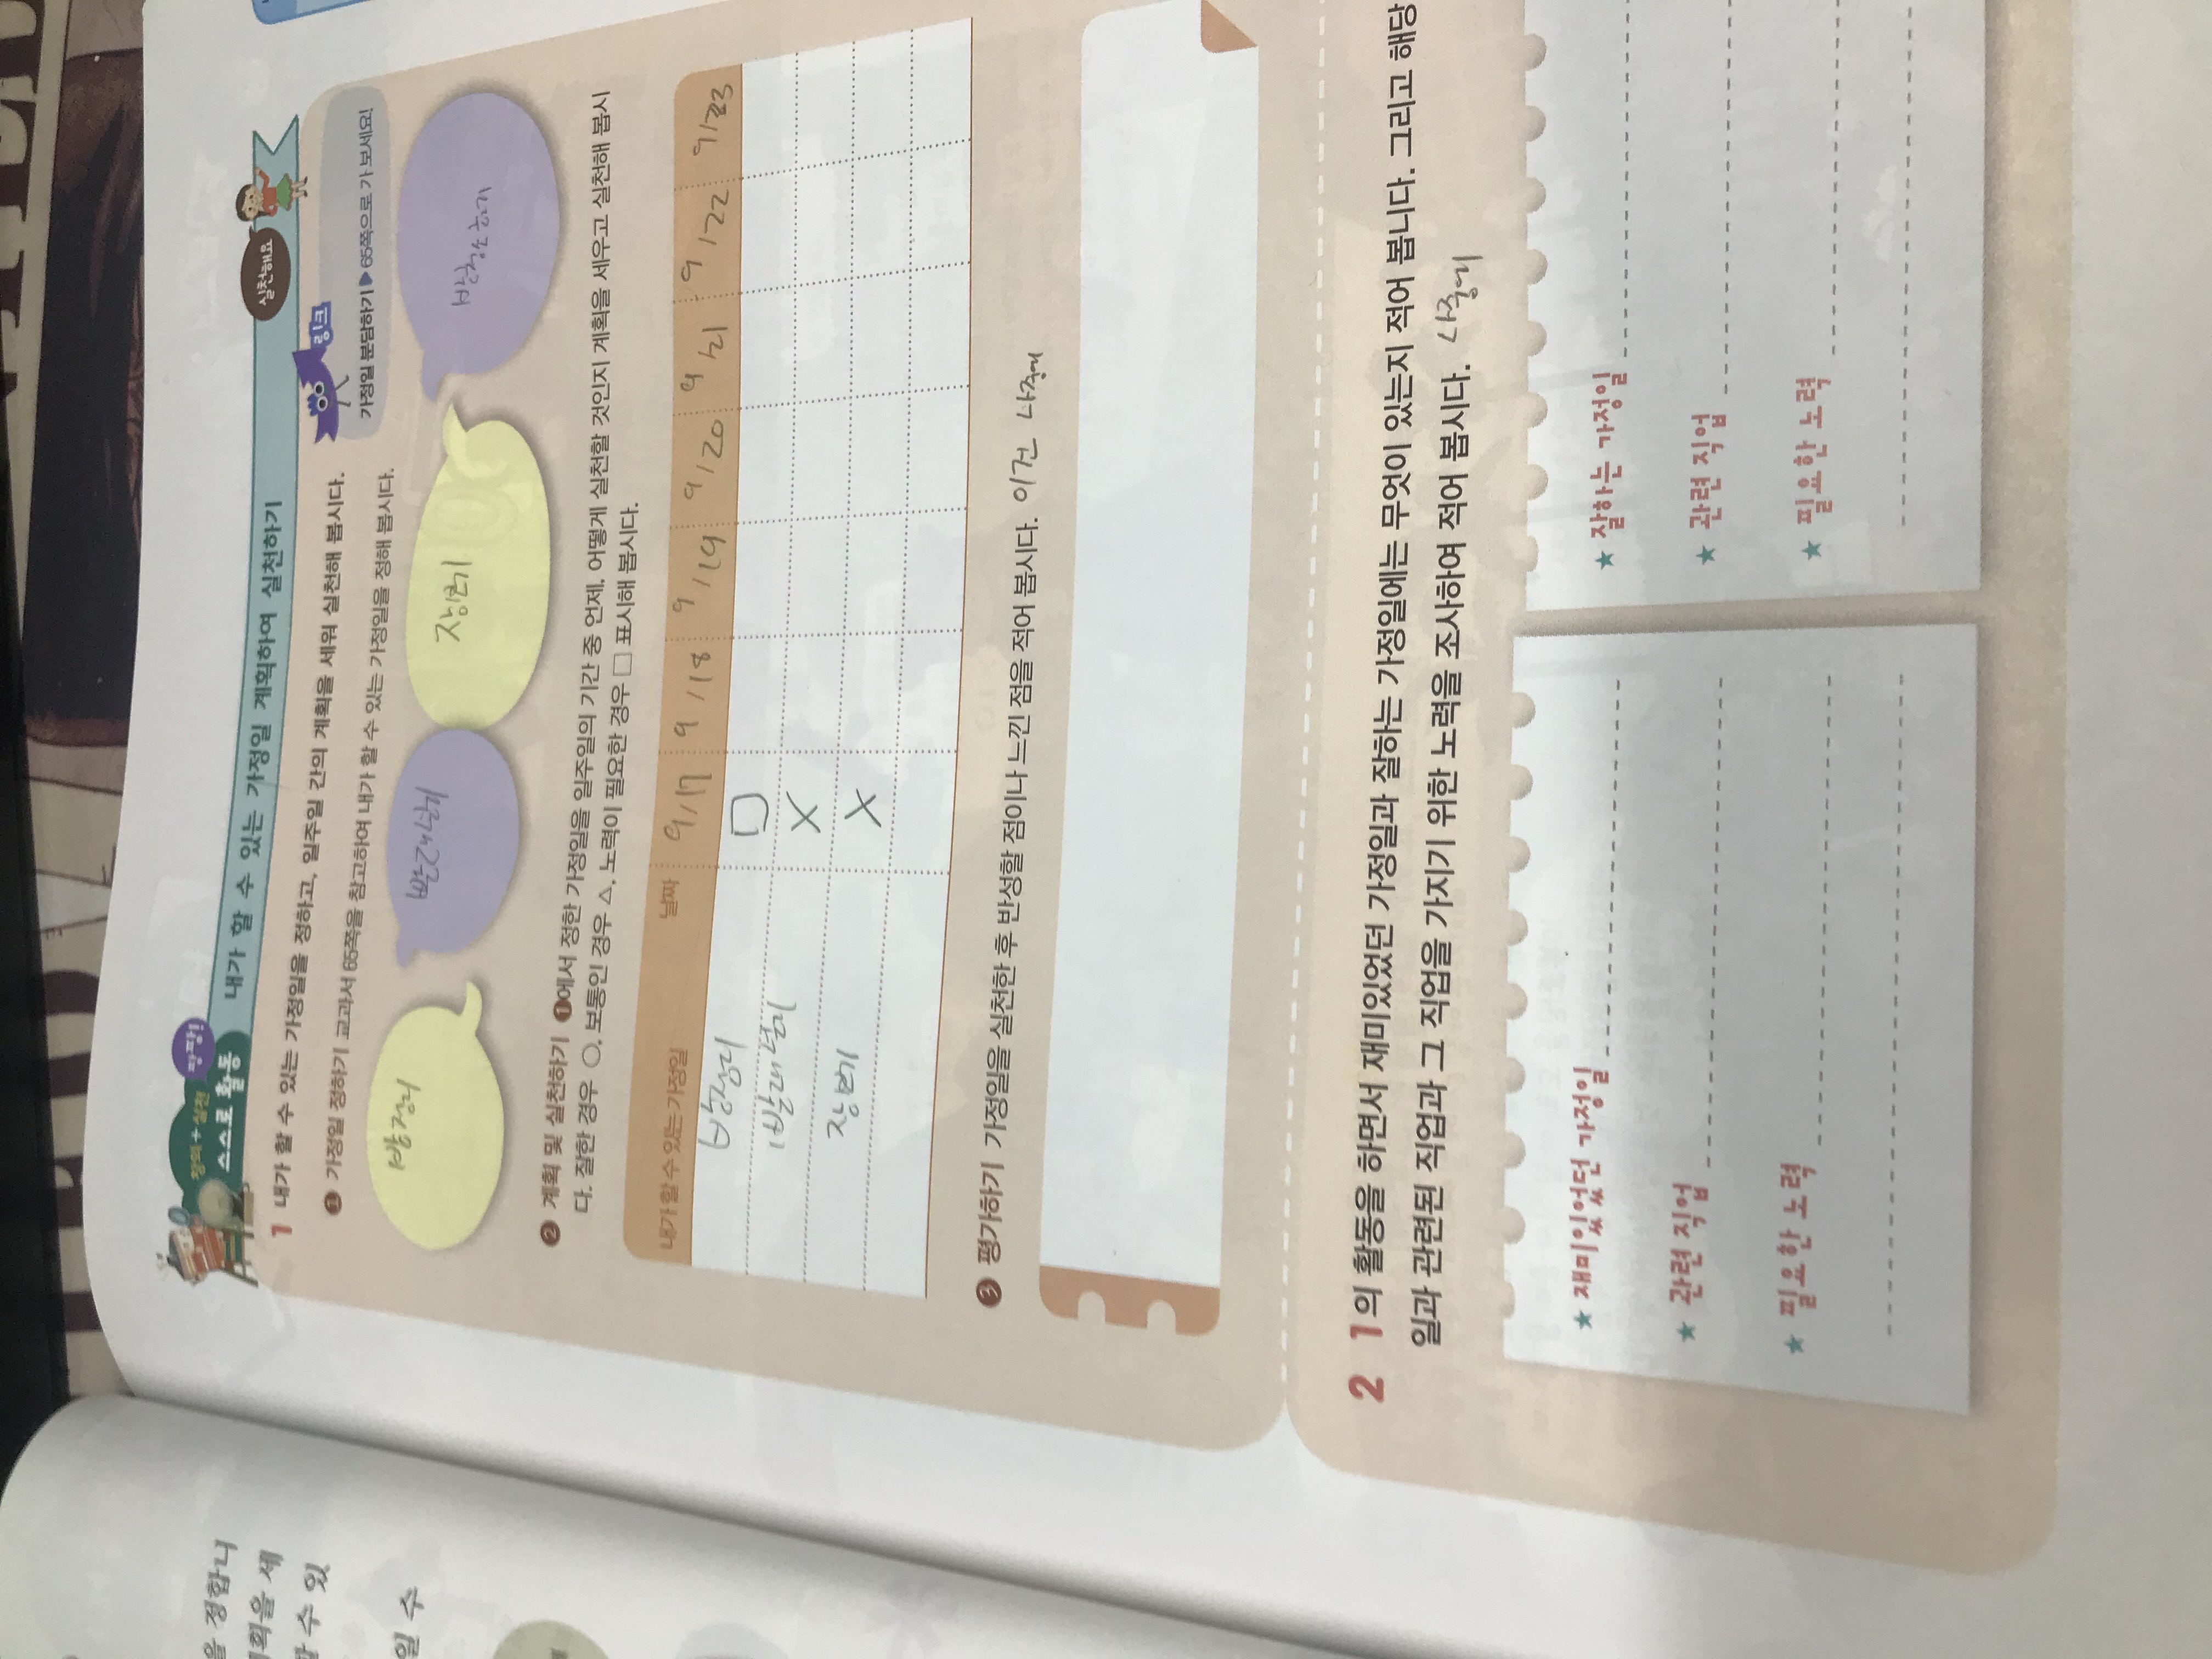 을 정합니
획을 세
할 수 있
일 수
창의+실천 팡팡!
스스로 활동
내가 할 수 있는 가정일 계획하여 실천하기
실천해요
1 내가 할 수 있는 가정일을 정하고, 일주일 간의 계획을 세워 실천해 봅시다.
링크
가정일 분담하기 ▶ 65쪽으로 가 보세요!
❶ 가정일 정하기 교과서 65쪽을 참고하여 내가 할 수 있는 가정일을 정해 봅시다.
방정리
빨래널기
장보기
방청소하기
❷ 계획 및 실천하기 ❶에서 정한 가정일을 일주일의 기간 중 언제, 어떻게 실천할 것인지 계획을 세우고 실천해 봅시
다. 잘한 경우 ○, 보통인 경우 △, 노력이 필요한 경우 □ 표시해 봅시다.
내가 할 수 있는 가정일 날짜 9/17 9/18 9/19 9/20 9/21 9/22 9/23
방정리 □
빨래널기 X
장보기 X
❸ 평가하기 가정일을 실천한 후 반성할 점이나 느낀 점을 적어 봅시다. 이건 나중에
2 1의 활동을 하면서 재미있었던 가정일과 잘하는 가정일에는 무엇이 있는지 적어 봅니다. 그리고 해당
일과 관련된 직업과 그 직업을 가지기 위한 노력을 조사하여 적어 봅시다. 나중에
★ 재미있었던 가정일
★ 관련 직업
★ 필요한 노력
★ 잘하는 가정일
★ 관련 직업
★ 필요한 노력